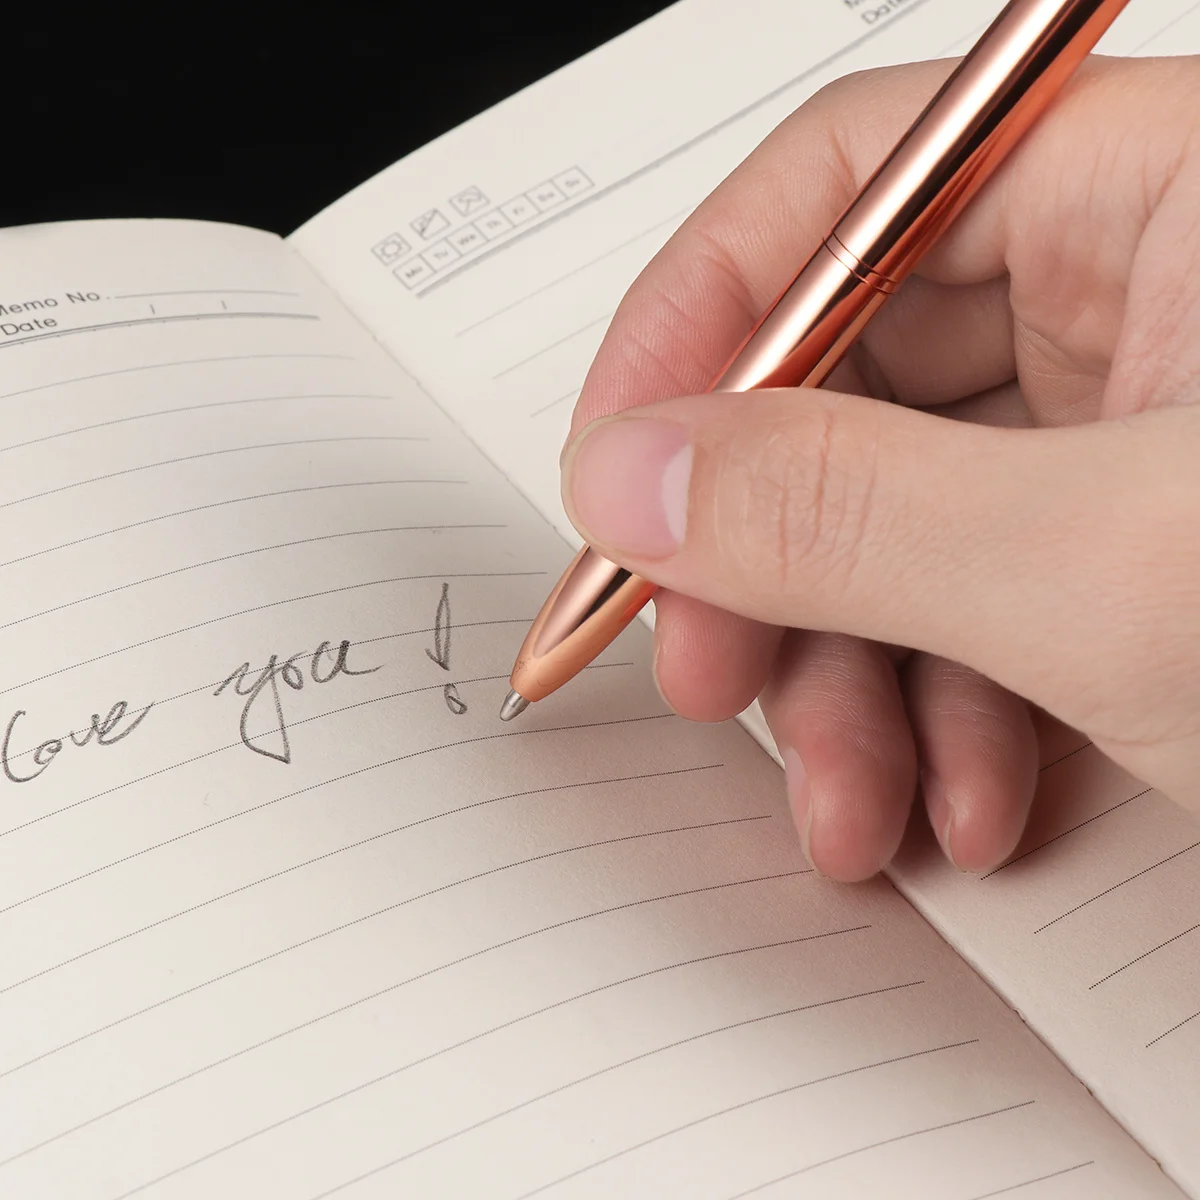 Memo No.
Date / /
Love you!
Mo Tu We Th Fr Sa Su
Date